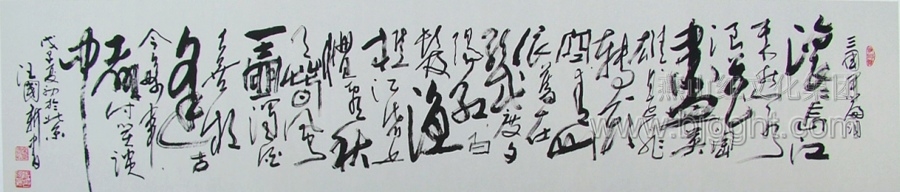 三国开篇词
滚滚长江
东逝水
浪花淘
尽英
雄是非
成败转头
空青山
依旧在
几度夕
阳红白
发渔
樵江渚上
惯看秋
月春风
一壶浊酒
喜相
逢古
今多少事
都付笑谈
中
戊子夏初于北京
汪国新书